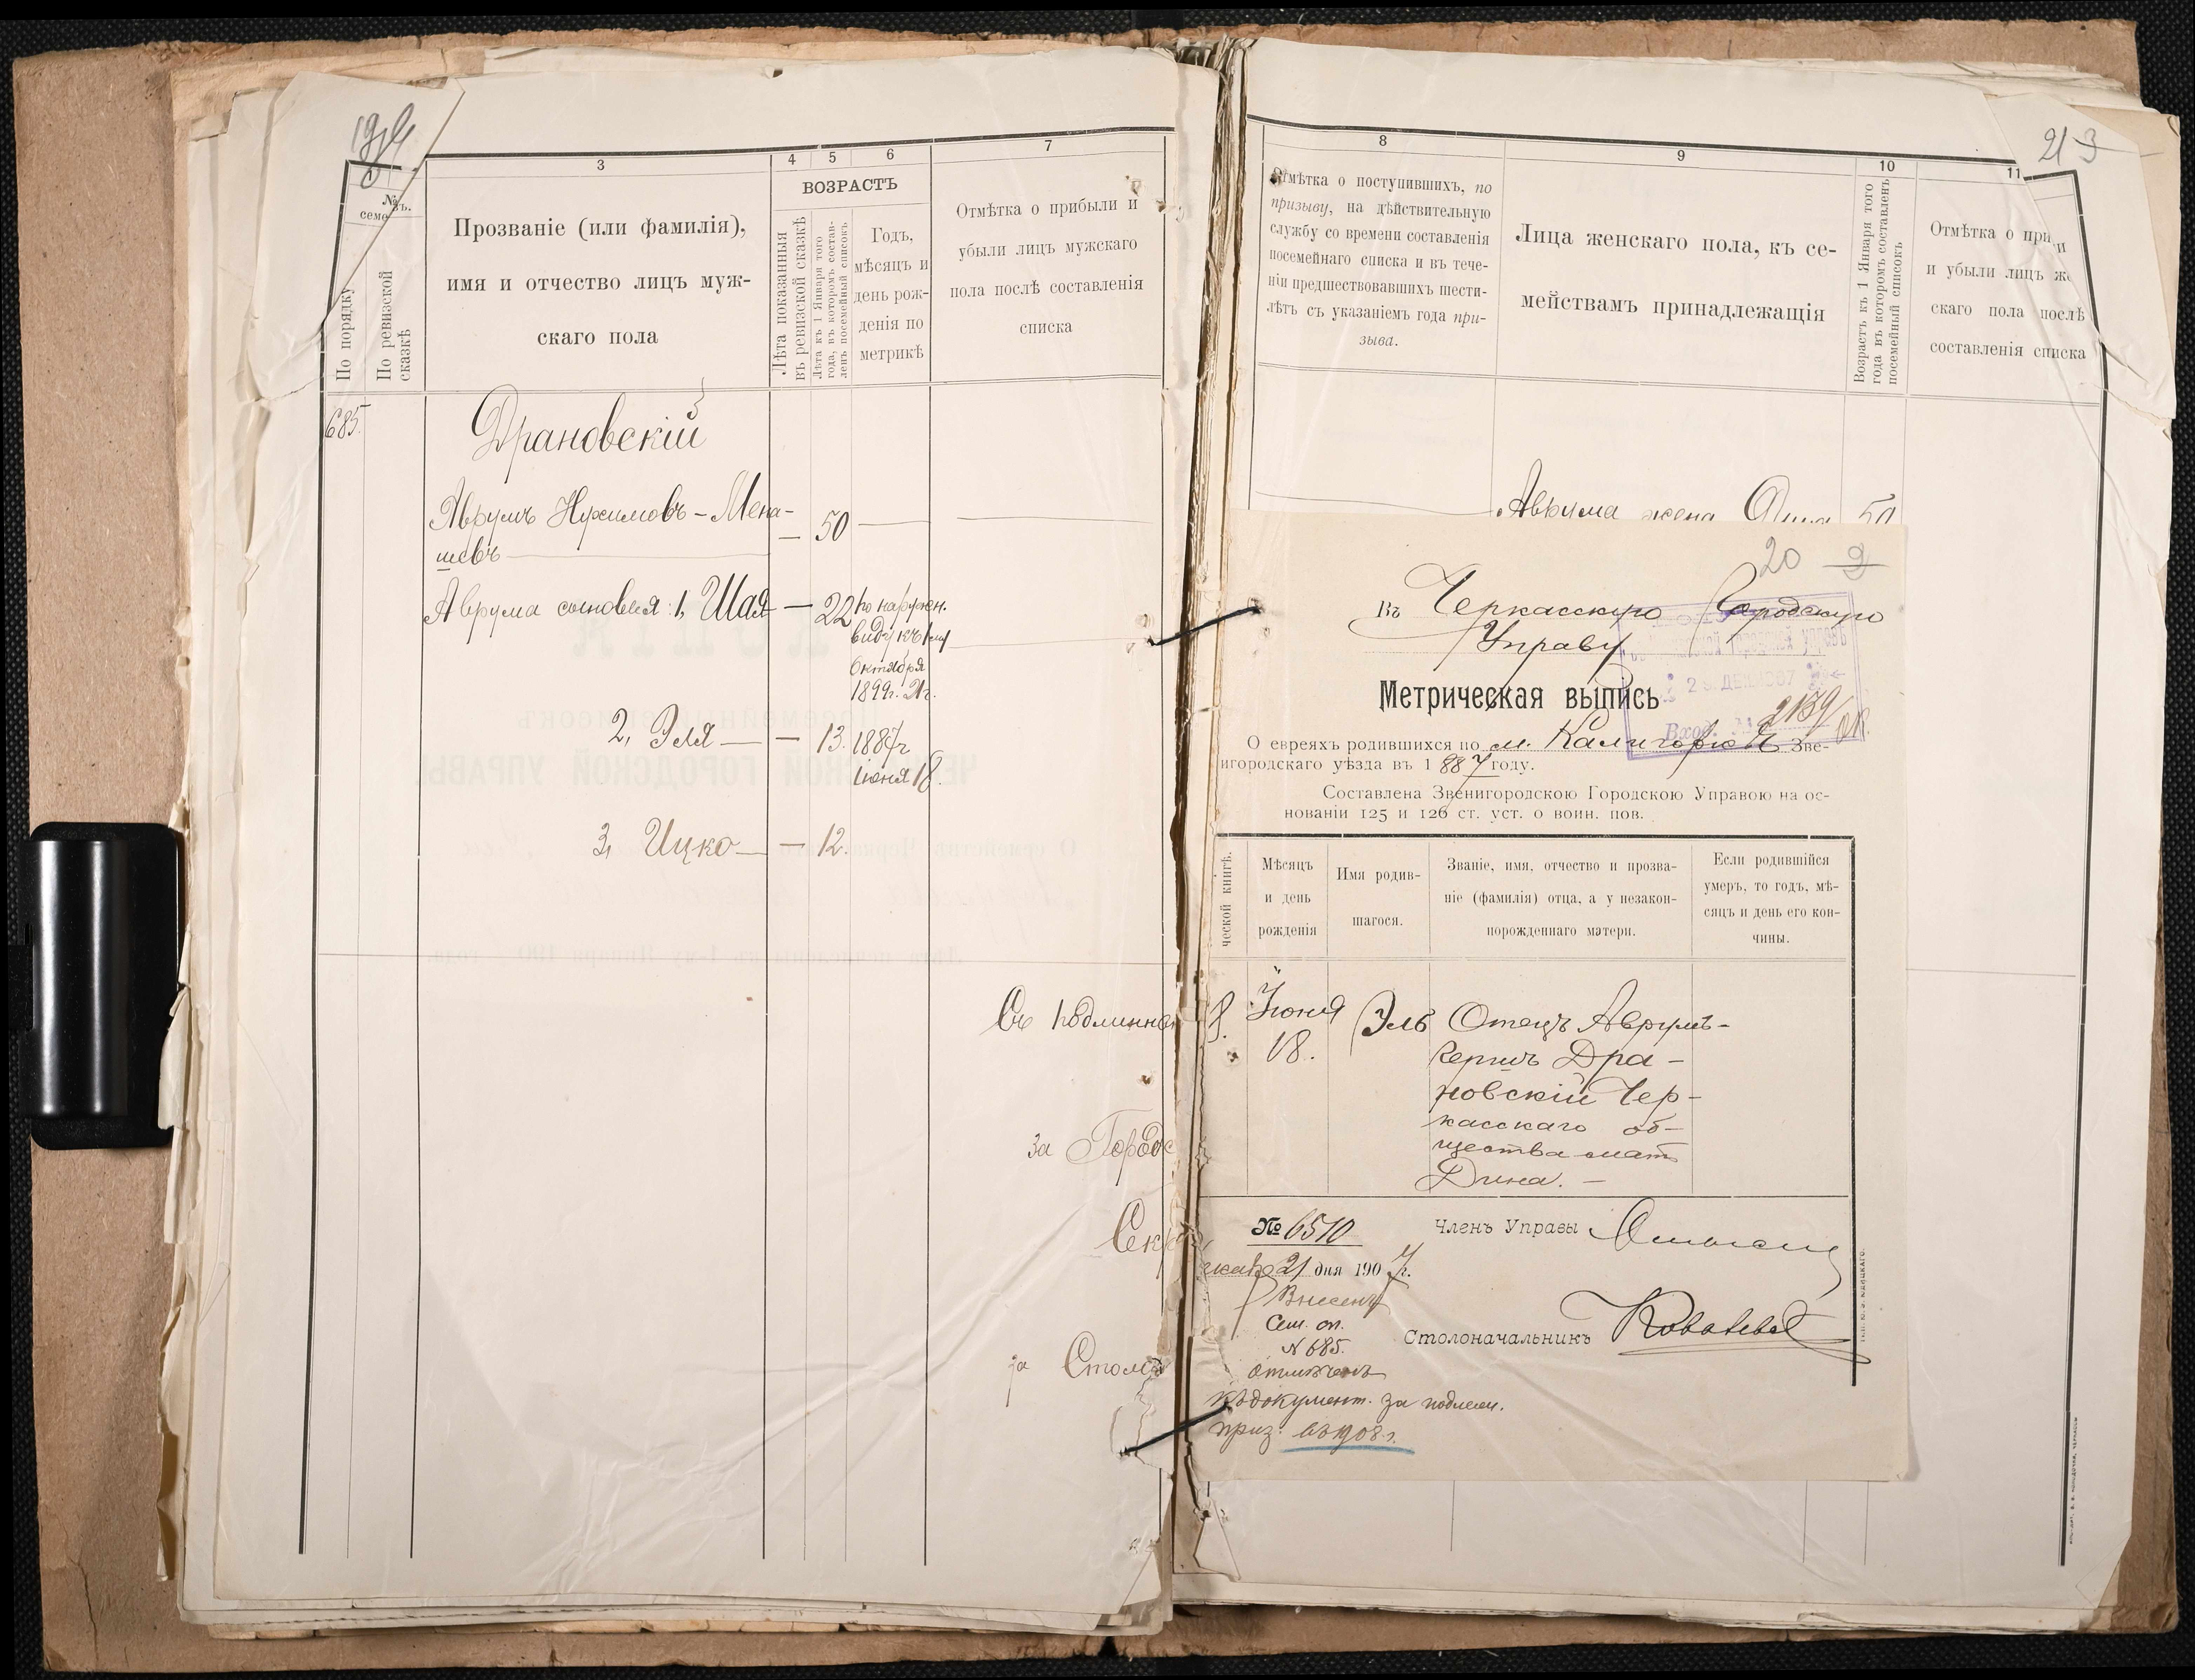 3
4
5
6
7
ВОЗРАСТЪ
№
По порядку
По ревизской
сказкѣ
Прозваніе (или фамилія),
имя и отчество лицъ муж-
скаго пола
Лѣта показанныя
въ ревизской сказкѣ
Лѣта къ 1 Января того
года, въ которомъ состав-
ленъ посемейный списокъ
Годъ,
мѣсяцъ и
день рож-
денія по
метрикѣ
Отмѣтка о прибыли и
убыли лицъ мужскаго
пола послѣ составленія
списка
685.
Драновскій
Аврумъ Нухимовъ-Мена- — 50
шевъ
Аврума сыновья: 1, Шая — 22 по наружн.
виду къ 1му
Октября
1899г. 21г.
2, Эля — 13. 1887г
іюня 18.
3, Ицко — 12.
Съ подлинн
за Городс
Сек
за Стол
21 3
8
9
10
11
Отмѣтка о поступившихъ, по
призыву, на дѣйствительную
службу со времени составленія
посемейнаго списка и въ тече-
ніи предшествовавшихъ шести-
лѣтъ съ указаніемъ года при-
зыва.
Лица женскаго пола, къ се-
мействамъ принадлежащія
Возрастъ къ 1 Января того
года въ которомъ составленъ
посемейный списокъ
Отмѣтка о при и
и убыли лицъ же
скаго пола послѣ
составленія списка
Аврума жена 50
20 9
Въ Черкасскую Городскую
Управу
Метрическая выпись
Вход. 2139
О евреяхъ родившихся по м. Калигорк Зве-
игородскаго уѣзда въ 1887 году.
Составлена Звенигородскою Городскою Управою на ос-
нованіи 125 и 126 ст. уст. о воин. пов.
ческой книгѣ.
Мѣсяцъ
и день
рожденія
Имя родив-
шагося.
Званіе, имя, отчество и прозва-
ніе (фамилія) отца, а у незакон-
норожденнаго матери.
Если родившійся
умеръ, то годъ, мѣ-
сяцъ и день его кон-
чины.
8. Іюня Эль Отецъ Аврумъ-
18. Гершъ Дра-
новскій Чер-
касскаго об-
щества мать
Дина. —
№ 6510 Членъ Управы
21 дня 1907г.
Внесенъ
Сем. сп.
N 685.
Столоначальникъ
отмѣченъ
къ документ. за подлеж.
приз. въ 1908 г.